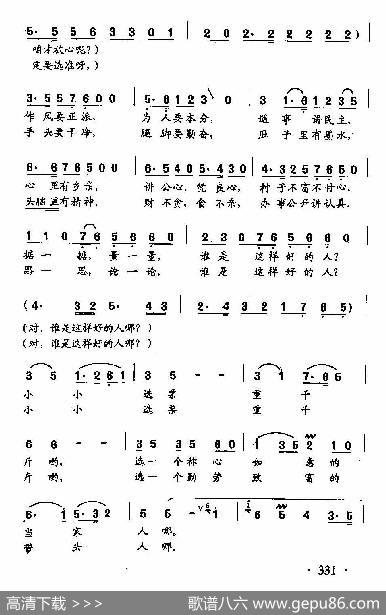 5· 5 5 6 3 3 0 1 | 2 0 2 · 2 2 2 0 |
咱才放心呢?)
定要选准呀,)
3· 5 5 7 6 0 0 | 5· 6 1 2 3 0 | 3 1· 6 1 2 3 5 |
作风要正派, 为人要本分, 遇事讲民主,
手头要干净, 腿脚要勤奋, 肚子里有墨水,
6· 6 7 6 5 0 0 | 5· 4 0 6 5 0 5· 4 3 0 | 4· 3 2 5 7 6 0 |
心里有乡亲, 讲公心, 凭良心, 村子不富不甘心.
头脑里有精神, 财不贪, 食不杀, 办事公开讲认真.
掂一掂,量一量, 谁是这样好的人?
思一思,论一论, 谁是这样好的人?
(4· 3 2 5· 4 3 | 2· 2 5 4 3 2 1 7 6 5) |
(对,谁是这样好的人哪?)
(对,谁是这样好的人哪?)
3 5 1· 2 6 1 | 3 5 - - | 3 1 7· 6 5 |
小小选票重千
小小选票重千
6 6 - - | 3 5 3 5 6 0 | 1 3 5 2 1 0 |
斤哟, 选一个称心如意的
斤哟, 选一个勤劳致富的
当家人哪.
带头人哪.
· 331 ·
高清下载 > >
歌谱八六 www.gepu86.com